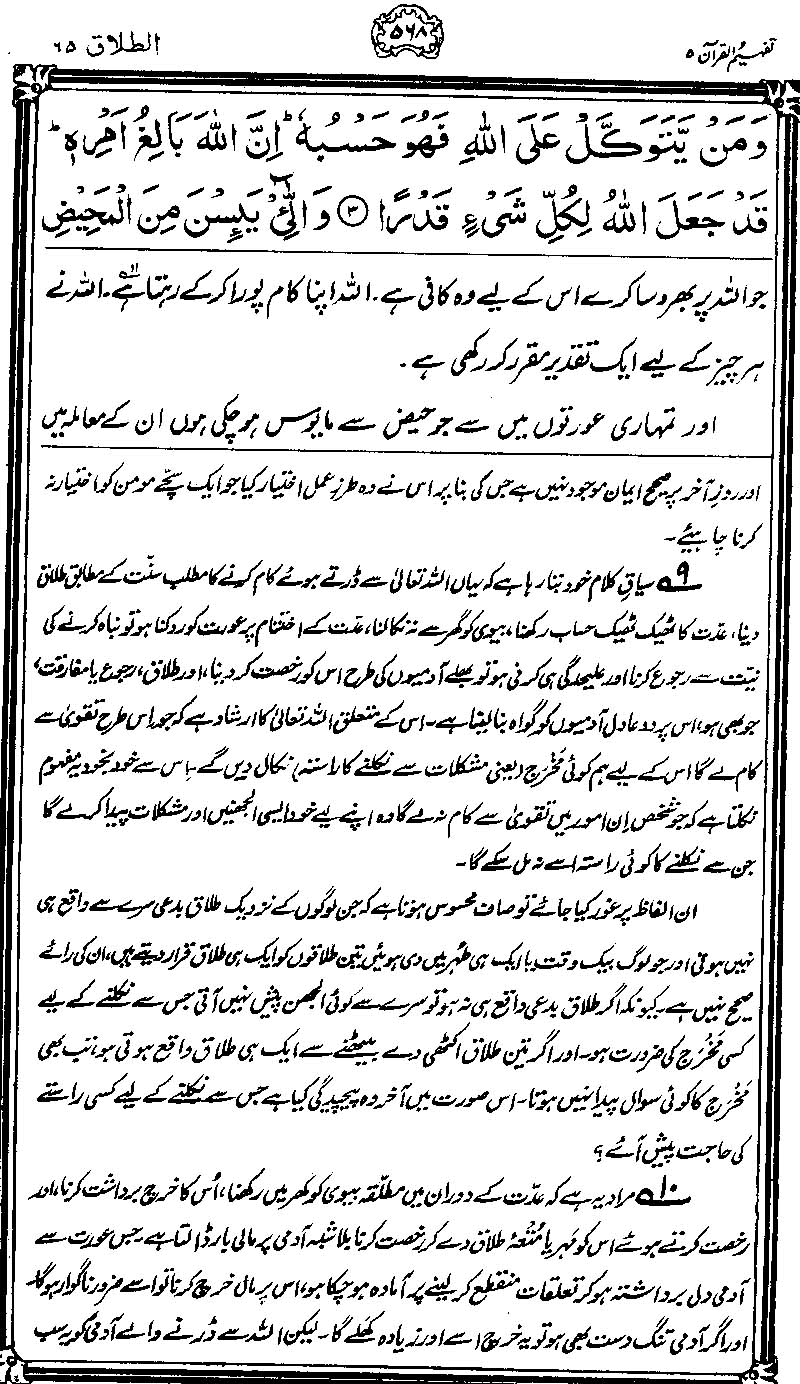 تفہیم القرآن ۵
۵۶۸
الطلاق ۶۵
وَمَنْ يَّتَوَكَّلْ عَلَى اللّٰهِ فَهُوَ حَسْبُهٗ ؕ اِنَّ اللّٰهَ بَالِغُ اَمْرِهٖ ؕ
قَدْ جَعَلَ اللّٰهُ لِكُلِّ شَيْءٍ قَدْرًا ﴿۳﴾ وَالّٰٓـِٔيْ يَىِٕسْنَ مِنَ الْمَحِيْضِ
جو اللہ پر بھروسا کرے اس کے لیے وہ کافی ہے۔ اللہ اپنا کام پورا کر کے رہتا ہے۱۱؎۔ اللہ نے
ہر چیز کے لیے ایک تقدیر مقرر کر رکھی ہے۔
اور تمہاری عورتوں میں سے جو حیض سے مایوس ہو چکی ہوں ان کے معاملہ میں
اور روزِ آخر پر صحیح ایمان موجود نہیں ہے جس کی بنا پر اس نے وہ طرزِ عمل اختیار کیا جو ایک سچے مومن کو اختیار نہ
کرنا چاہیئے۔
۹؎ سیاقِ کلام خود بتا رہا ہے کہ یہاں اللہ تعالیٰ سے ڈرتے ہوئے کام کرنے کا مطلب سنّت کے مطابق طلاق
دینا، عدّت کا ٹھیک ٹھیک حساب رکھنا، بیوی کو گھر سے نہ نکالنا، عدّت کے اختتام پر عورت کو روکنا ہو تو نباہ کرنے کی
نیّت سے رجوع کرنا اور علیحدگی ہی کرنی ہو تو بھلے آدمیوں کی طرح اس کو رخصت کر دینا، اور طلاق، رجوع یا مفارقت،
جو بھی ہو، اس پر دو عادل آدمیوں کو گواہ بنا لینا ہے۔ اس کے متعلق اللہ تعالیٰ کا ارشاد ہے کہ جو اس طرح تقویٰ سے
کام لے گا اس کے لیے ہم کوئی مَخْرَج (یعنی مشکلات سے نکلنے کا راستہ) نکال دیں گے۔ اس سے خود بخود یہ مفہوم
نکلتا ہے کہ جو شخص اِن امور میں تقویٰ سے کام نہ لے گا وہ اپنے لیے خود ایسی الجھنیں اور مشکلات پیدا کر لے گا
جن سے نکلنے کا کوئی راستہ اسے نہ مل سکے گا۔
ان الفاظ پر غور کیا جائے تو صاف محسوس ہوتا ہے کہ جن لوگوں کے نزدیک طلاق بدعی سرے سے واقع ہی
نہیں ہوتی اور جو لوگ بیک وقت یا ایک ہی طُہر میں دی ہوئیں تین طلاقوں کو ایک ہی طلاق قرار دیتے ہیں، ان کی رائے
صحیح نہیں ہے۔ کیونکہ اگر طلاق بدعی واقع ہی نہ ہو تو سرے سے کوئی الجھن پیش نہیں آتی جس سے نکلنے کے لیے
کسی مَخْرَج کی ضرورت ہو۔ اور اگر تین طلاق اکٹھی دے بیٹھنے سے ایک ہی طلاق واقع ہوتی ہو، تب بھی
مَخْرَج کا کوئی سوال پیدا نہیں ہوتا۔ اس صورت میں آخر وہ پیچیدگی کیا ہے جس سے نکلنے کے لیے کسی راستے
کی حاجت پیش آئے؟
۱۰؎ مراد یہ ہے کہ عدّت کے دوران میں مطلّقہ بیوی کو گھر میں رکھنا، اُس کا خرچ برداشت کرنا، اور
رخصت کرتے ہوئے اس کو مَہر یا مُتْعَۂ طلاق دے کر رخصت کرنا بلاشبہ آدمی پر مالی بار ڈالتا ہے۔ جس عورت سے
آدمی دل برداشتہ ہو کر تعلقات منقطع کر لینے پر آمادہ ہو چکا ہو، اس پر مال خرچ کرنا تو اسے ضرور ناگوار ہوگا۔
اور اگر آدمی تنگ دست بھی ہو تو یہ خرچ اسے اور زیادہ کَھلے گا۔ لیکن اللہ سے ڈرنے والے آدمی کو یہ سب